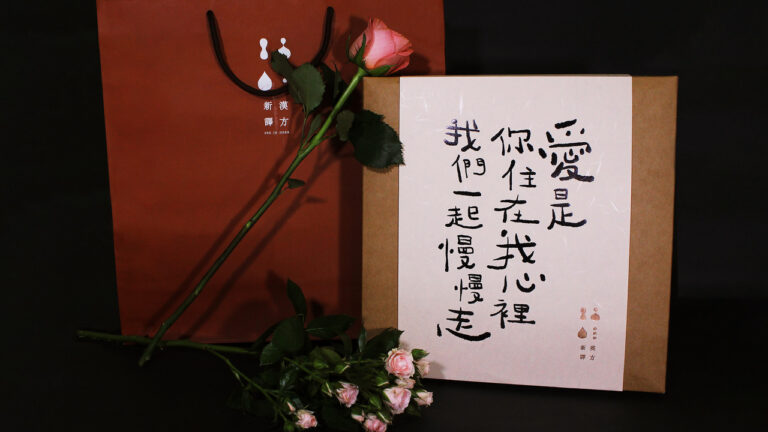 漢方
新譯
愛是
你住在我心裡
我們一起慢慢走
漢方
新譯